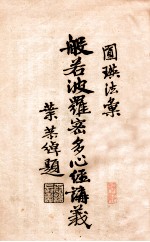 圓瑛法彙
般若波羅密多心經講義
葉恭綽題